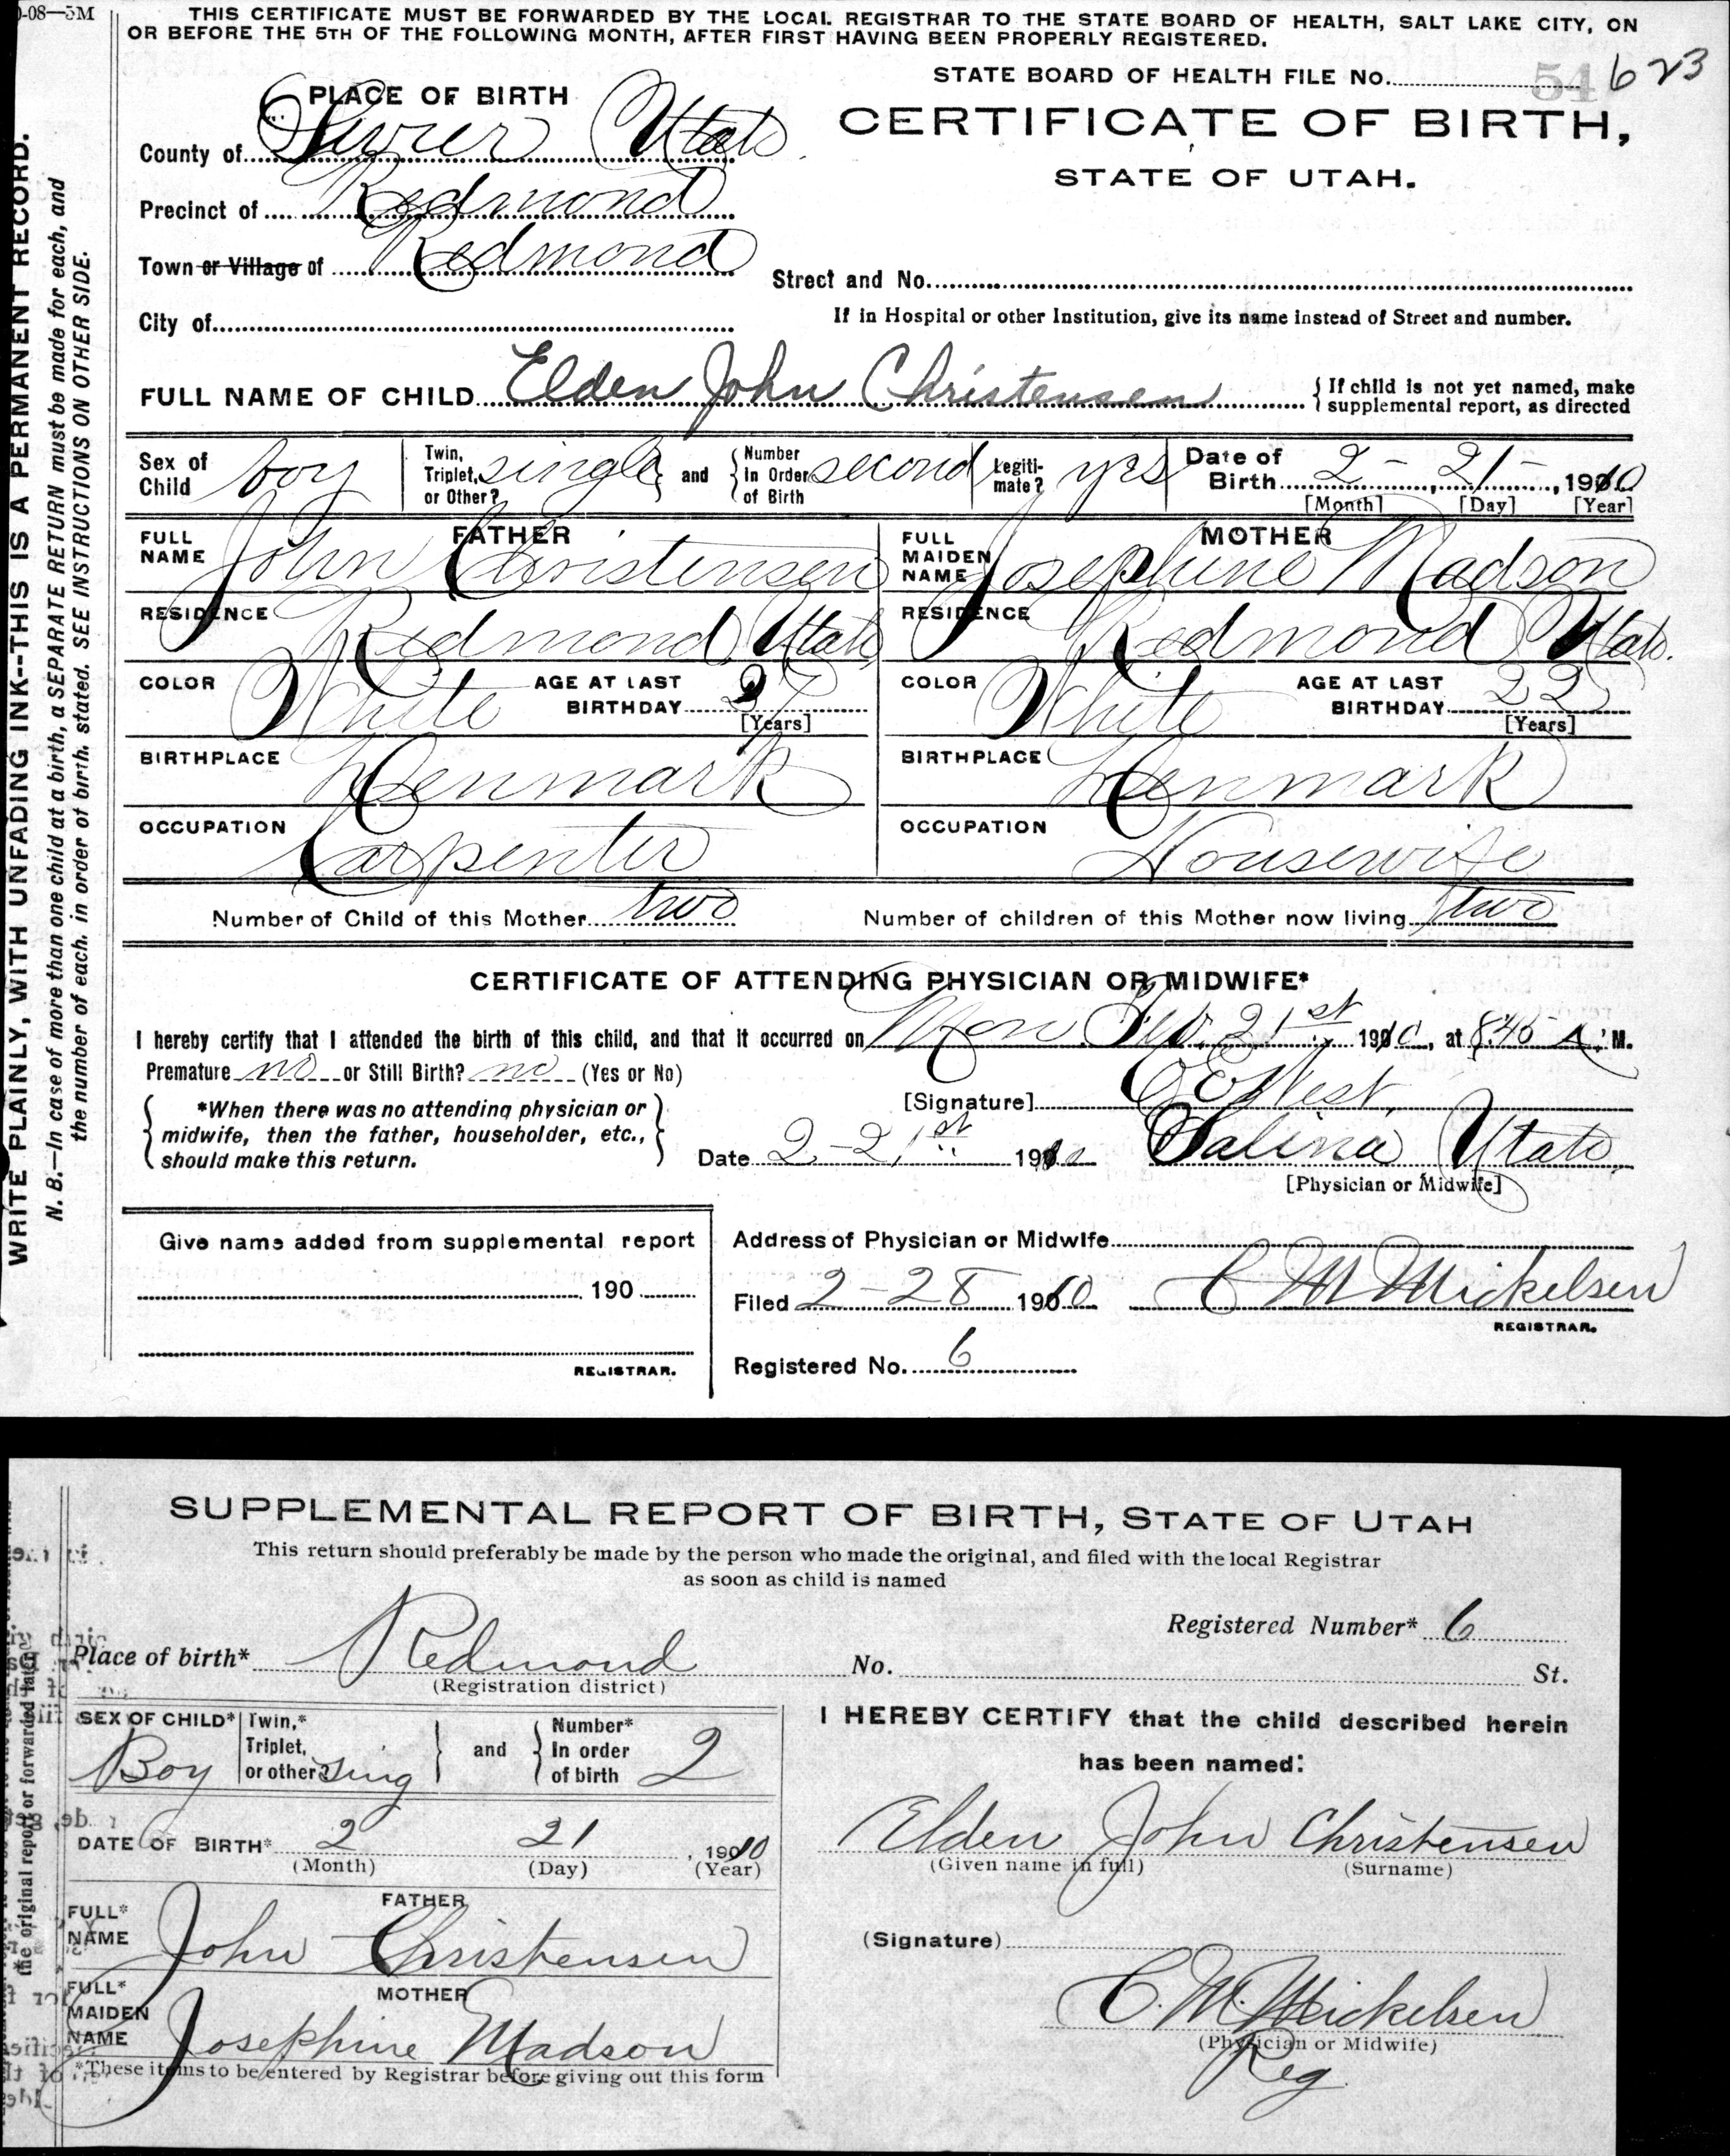 0-08—5M
THIS CERTIFICATE MUST BE FORWARDED BY THE LOCAL REGISTRAR TO THE STATE BOARD OF HEALTH, SALT LAKE CITY, ON
OR BEFORE THE 5TH OF THE FOLLOWING MONTH, AFTER FIRST HAVING BEEN PROPERLY REGISTERED.
STATE BOARD OF HEALTH FILE No. 54 623
PLACE OF BIRTH
CERTIFICATE OF BIRTH,
STATE OF UTAH.
County of Sevier Utah
Precinct of Redmond
Town or Village of Redmond
Street and No.
City of
If in Hospital or other Institution, give its name instead of Street and number.
FULL NAME OF CHILD Elden John Christensen { If child is not yet named, make
supplemental report, as directed
Sex of Child boy
Twin, Triplet, or Other? single and { Number In Order of Birth second
Legiti-mate? yes
Date of Birth 2 - 21 - , 1910
[Month] [Day] [Year]
FATHER
FULL NAME John Christensen
RESIDENCE Redmond Utah
COLOR White AGE AT LAST BIRTHDAY 27
[Years]
BIRTHPLACE Denmark
OCCUPATION Carpenter
MOTHER
FULL MAIDEN NAME Josephine Madson
RESIDENCE Redmond Utah.
COLOR White AGE AT LAST BIRTHDAY 22
[Years]
BIRTHPLACE Denmark
OCCUPATION Housewife
Number of Child of this Mother two Number of children of this Mother now living two
CERTIFICATE OF ATTENDING PHYSICIAN OR MIDWIFE*
I hereby certify that I attended the birth of this child, and that it occurred on Mon. Feb. 21st 1910, at 8:45 A. M.
Premature no or Still Birth? no (Yes or No)
*When there was no attending physician or
midwife, then the father, householder, etc.,
should make this return.
[Signature] West.
Date 2-21st 1910 Salina Utah
[Physician or Midwife]
Give name added from supplemental report
190
REGISTRAR.
Address of Physician or Midwife
Filed 2-28 1910 C M Mickelsen
REGISTRAR.
Registered No. 6
WRITE PLAINLY, WITH UNFADING INK--THIS IS A PERMANENT RECORD.
N. B.—In case of more than one child at a birth, a SEPARATE RETURN must be made for each, and
the number of each, in order of birth, stated. SEE INSTRUCTIONS ON OTHER SIDE.
SUPPLEMENTAL REPORT OF BIRTH, STATE OF UTAH
This return should preferably be made by the person who made the original, and filed with the local Registrar
as soon as child is named
Registered Number* 6
Place of birth* Redmond No. St.
(Registration district)
SEX OF CHILD* Boy
Twin,* Triplet, or other? Sing and { Number* In order of birth 2
DATE OF BIRTH* 2 21 , 1910
(Month) (Day) (Year)
FATHER
FULL* NAME John Christensen
MOTHER
FULL* MAIDEN NAME Josephine Madson
*These items to be entered by Registrar before giving out this form
I HEREBY CERTIFY that the child described herein
has been named:
Elden John Christensen
(Given name in full) (Surname)
(Signature)
C. M. Mickelsen
(Physician or Midwife)
Reg
the original report or forwarded